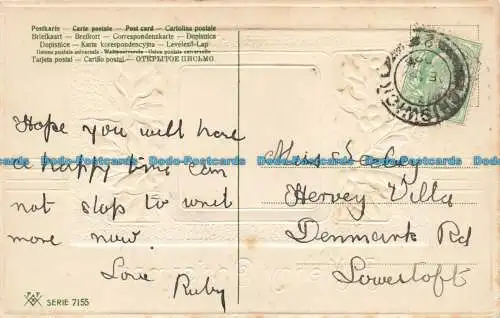 Postkarte – Carte postale – Post card – Cartolina postale
Briefkaart – Brefkort – Correspondenskarte – Dopisnica
Dopisnice – Karta korespondencyjna – Levelező-Lap
Unione postale universale – Weltpostverein – Union postale universelle
Tarjeta postal – Cartão postal – ОТКРЫТОЕ ПИСЬМО
Hope you will have
a happy time can
not stop to writ
more now.
Love Ruby
Miss
Hervey Villa
Denmark Rd
Lowestoft
IPSWICH
SERIE 7155
Dodo-Postcards Dodo-Postcards Dodo-Postcards Dodo-Postcards
Dodo-Postcards Dodo-Postcards Dodo-Postcards Dodo-Postcards